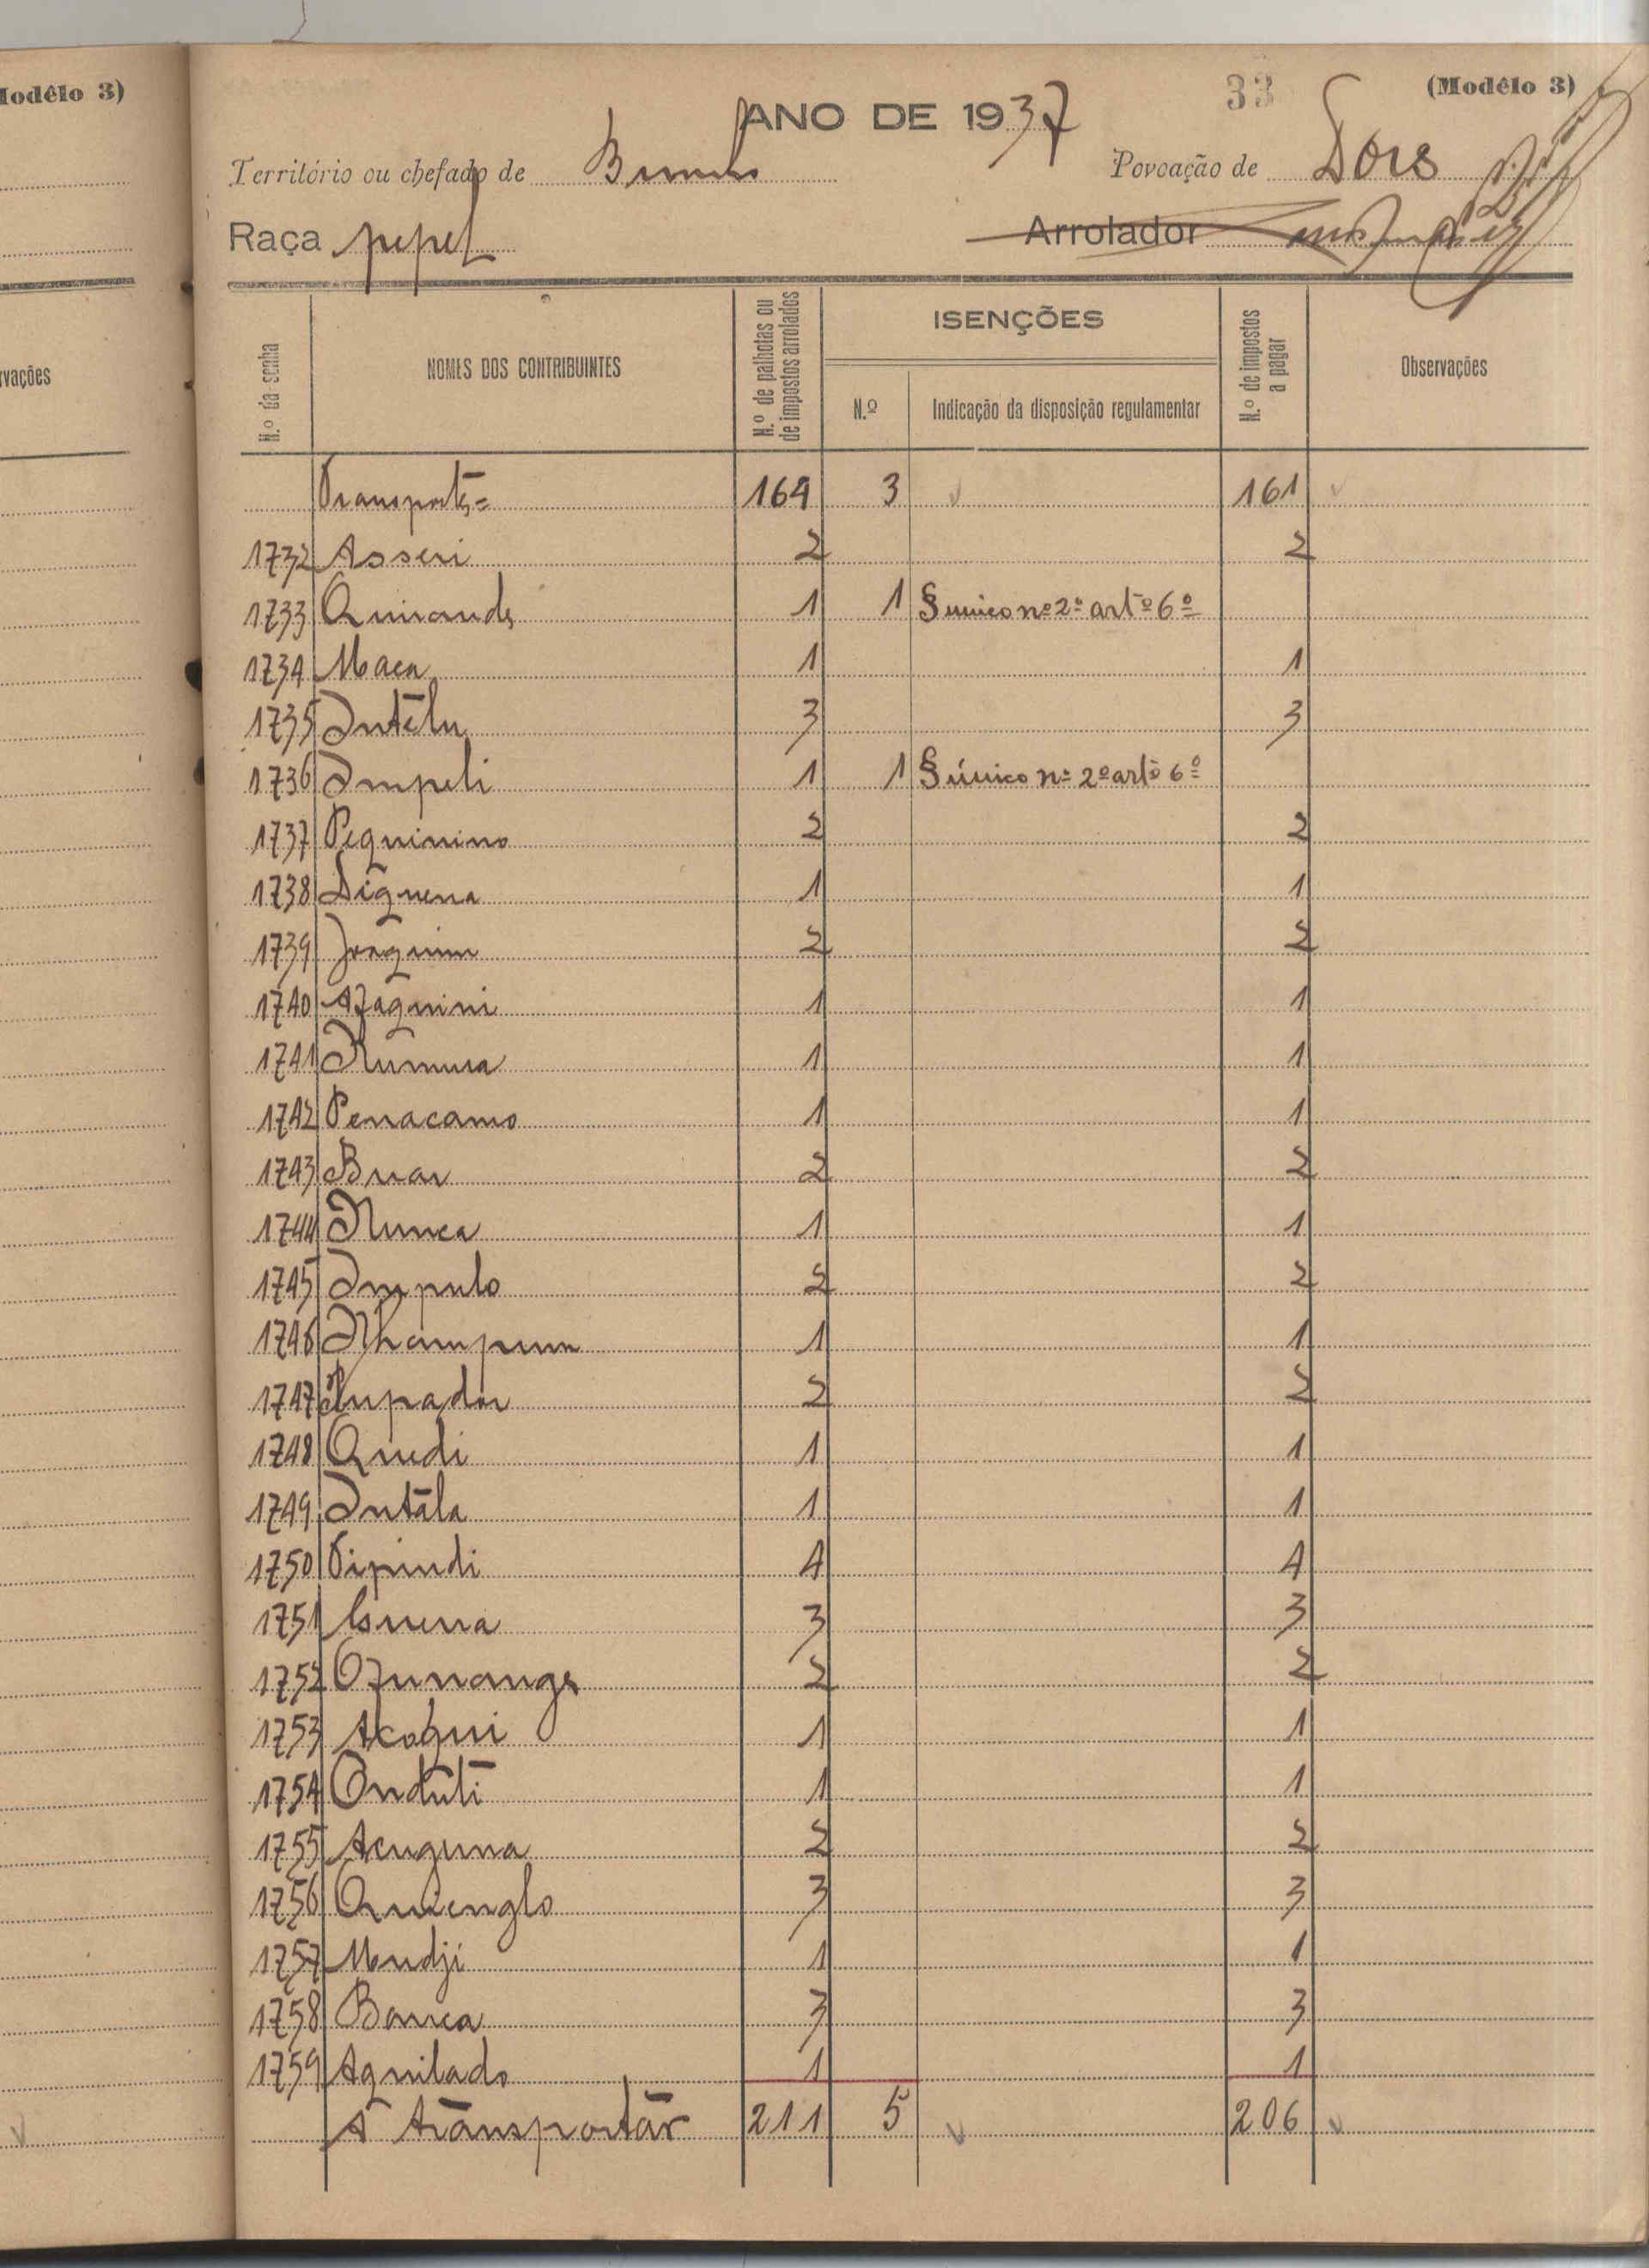 Modêlo 3)
vações
33
(Modêlo 3)
ANO DE 1937
Território ou chefado de
Povoação de Dors
Raça pepel
Arrolador
N.º da senha
NOMES DOS CONTRIBUINTES
N.º de palhotas ou de impostos arrolados
ISENÇÕES
N.º
Indicação da disposição regulamentar
N.º de impostos a pagar
Observações
Transporte= 164 3 161
1732 Asseri 2 2
1733 Quinande 1 1 § unico nº 2º artº 6º
1734 Maca 1 1
1735 Intélu 3 3
1736 Impeli 1 1 § único nº 2º artº 6º
1737 Pequinino 2 2
1738 Siguena 1 1
1739 Joaquim 2 2
1740 Afaquini 1 1
1741 Numura 1 1
1742 Penacamo 1 1
1743 Buar 2 2
1744 Nunca 1 1
1745 Impulo 2 2
1746 Nhampum 1 1
1747 2 2
1748 Quedi 1 1
1749 Intála 1 1
1750 Pipindi 4 4
1751 3 3
1752 Ofunange 2 2
1753 Acoqui 1 1
1754 Onduti 1 1
1755 Acuguna 2 2
1756 3 3
1757 Mudji 1 1
1758 Banca 3 3
1759 Aquilado 1 1
A transportar 211 5 206